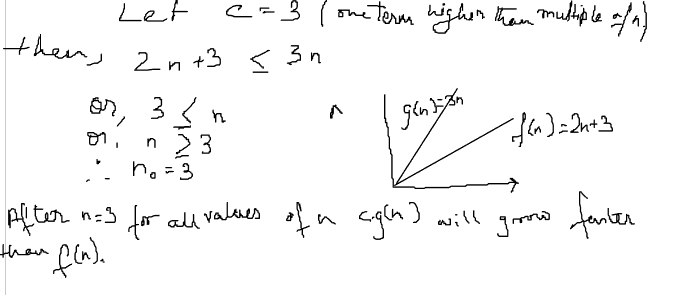 Let c = 3 (one term higher than multiple of n)
then, 2n+3 ≤ 3n
or, 3 ≤ n
or, n ≥ 3
∴ n₀ = 3
g(n)=3n
f(n)=2n+3
After n=3 for all values of n c.g(n) will grow faster
than f(n).